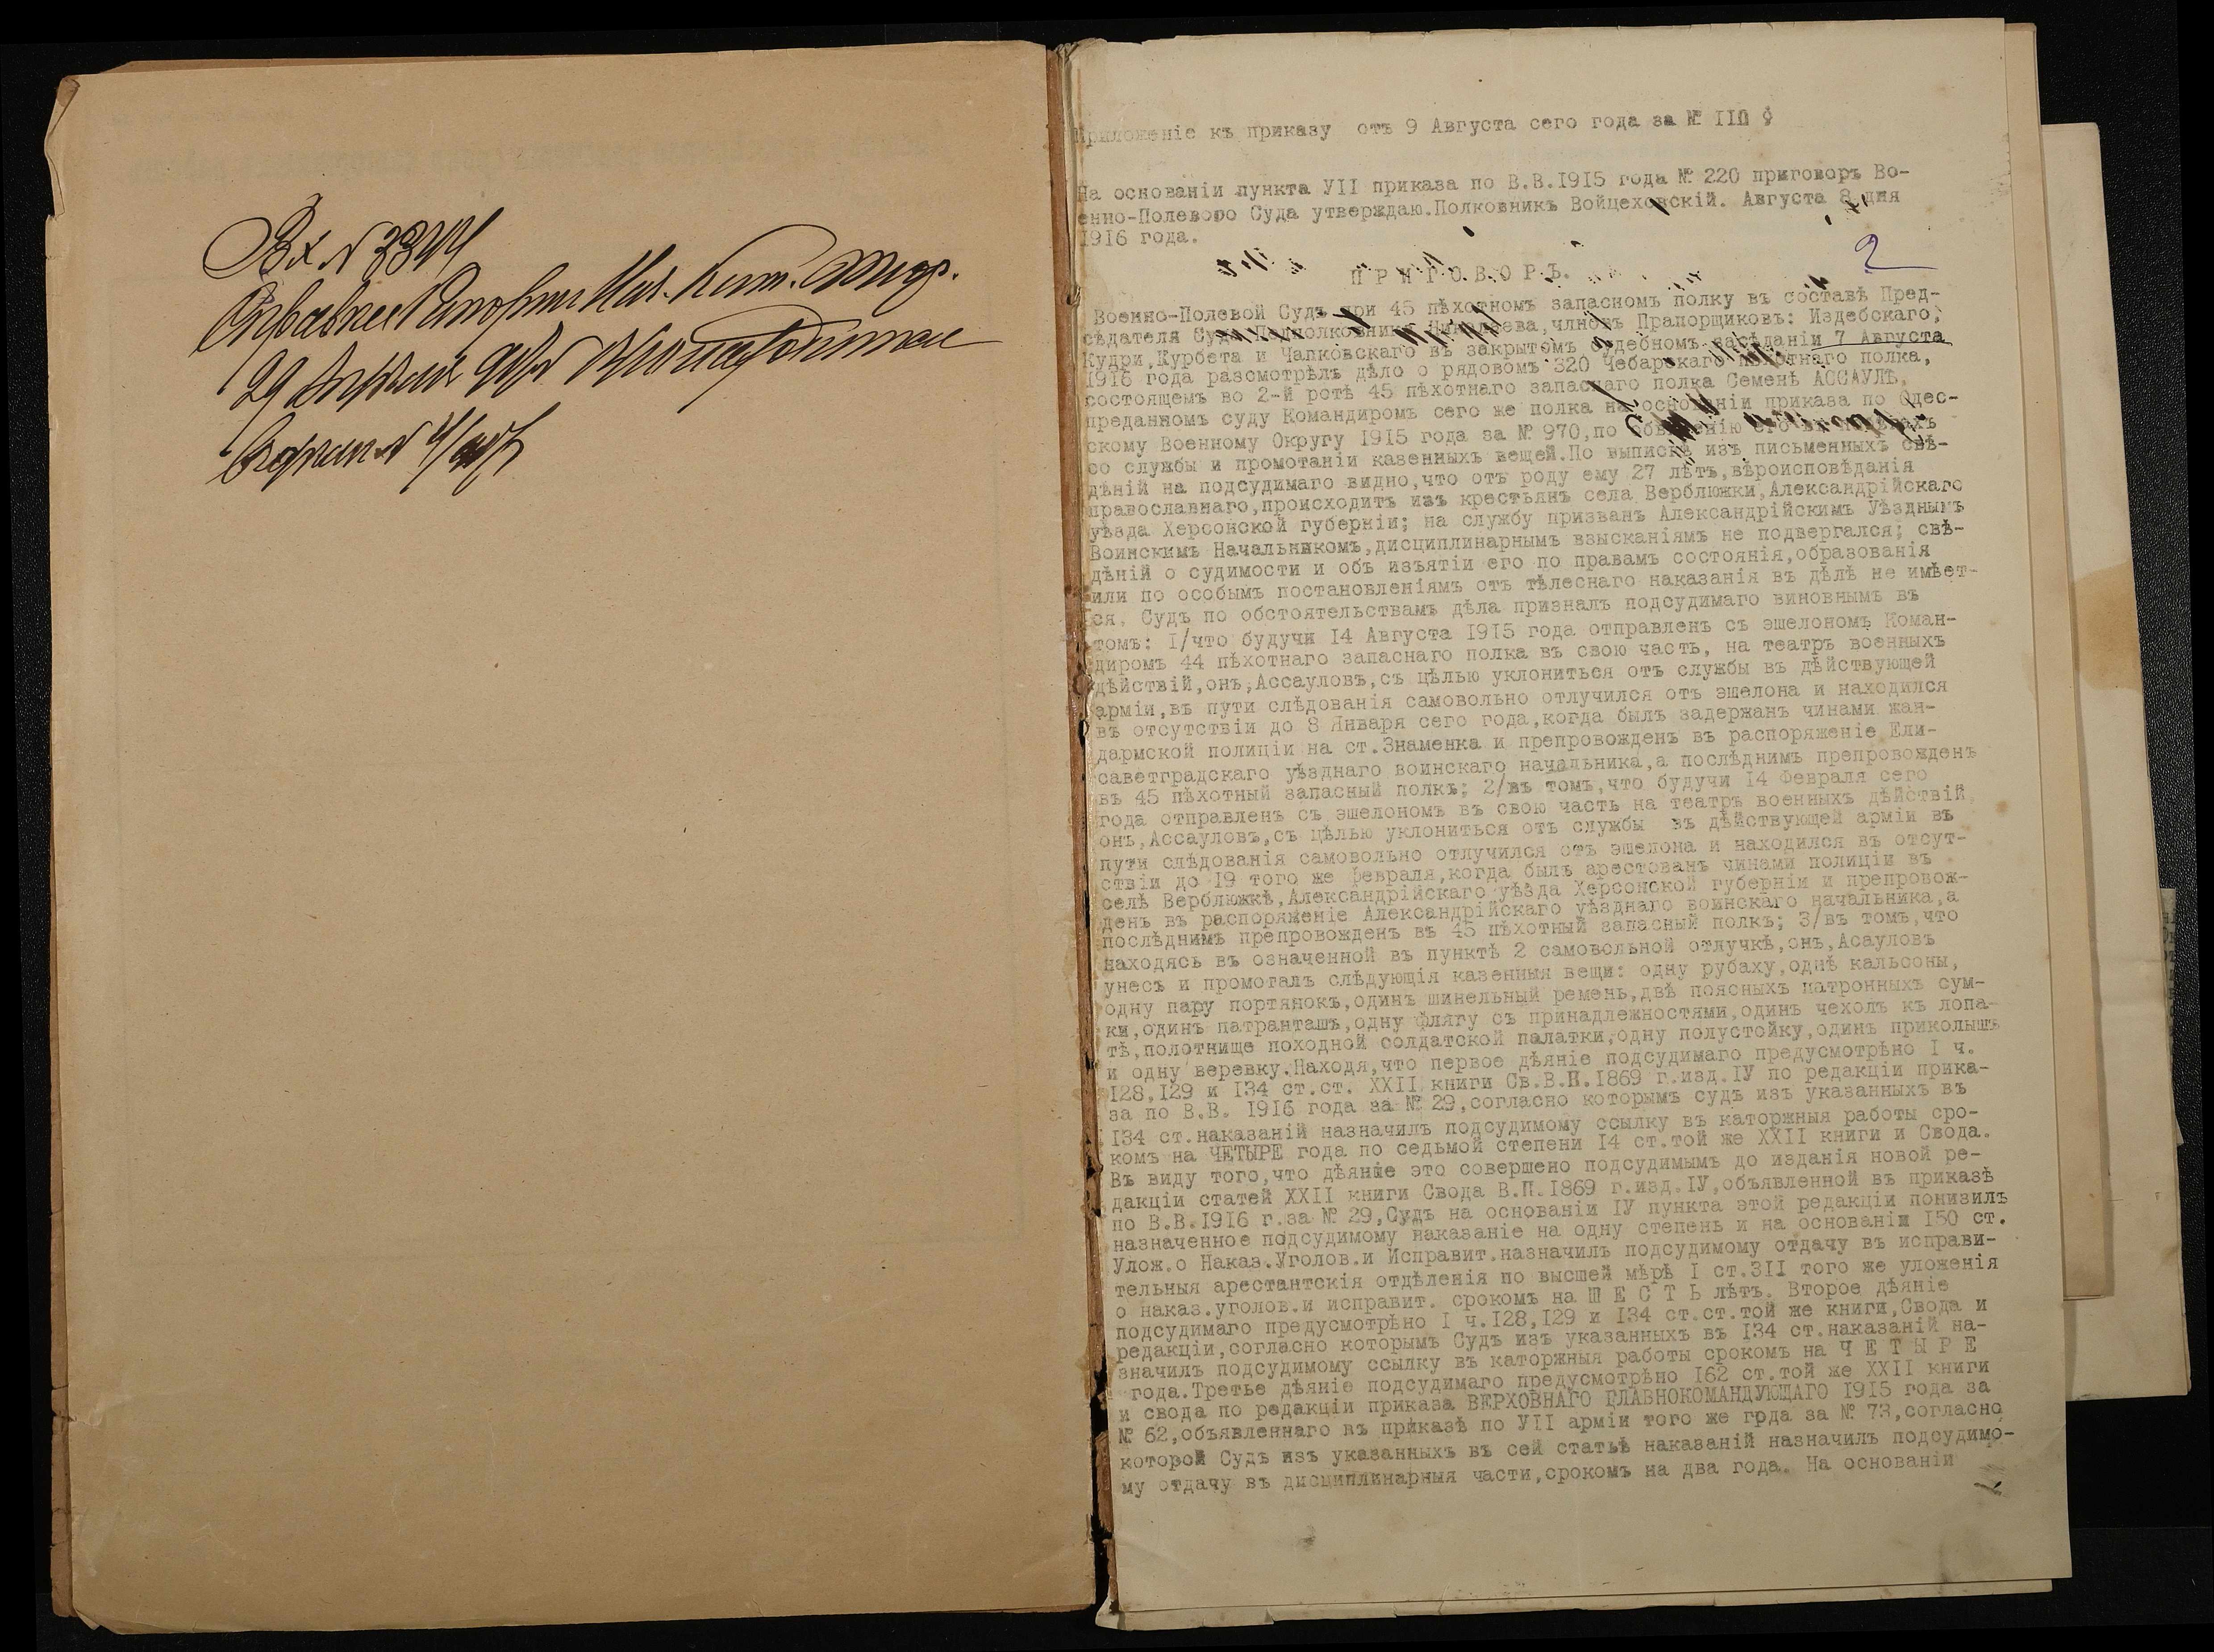 Вх N 3344
Приложеніе къ приказу отъ 9 Августа сего года за №
На основаніи пункта УІІ приказа по В.В.І9І5 года № 220 приговоръ Во-
енно-Полевого Суда утверждаю.Полковникъ Войцеховскій. Августа 8 дня
І9І6 года.
2
П Р И Г О В О Р Ъ.
Военно-Полевой Судъ при 45 пѣхотномъ запасномъ полку въ составѣ Пред-
сѣдателя Суда Подполковника Николаева,члновъ Прапорщиковъ: Издебскаго,
Кудри,Курбета и Чапковскаго въ закрытомъ судебномъ засѣданіи 7 Августа
І9І6 года разсмотрѣлъ дѣло о рядовомъ 320 Чебарскаго пѣхотнаго полка,
состоящемъ во 2-й ротѣ 45 пѣхотнаго запаснаго полка Семенѣ АССАУЛѢ,
преданномъ суду Командиромъ сего же полка на основаніи приказа по Одес-
скому Военному Округу І9І5 года за № 970,по обвиненію его въ
со службы и промотаніи казенныхъ вещей.По выпискѣ изъ письменныхъ свѣ-
дѣній на подсудимаго видно,что отъ роду ему 27 лѣтъ,вѣроисповѣданія
православнаго,происходитъ изъ крестьянъ села Верблюжки,Александрійскаго
уѣзда Херсонской губерніи; на службу призванъ Александрійскимъ Уѣзднымъ
Воинскимъ Начальникомъ,дисциплинарнымъ взысканіямъ не подвергался; свѣ-
дѣній о судимости и объ изъятіи его по правамъ состоянія,образованія
или по особымъ постановленіямъ отъ тѣлеснаго наказанія въ дѣлѣ не имѣет-
ся. Судъ по обстоятельствамъ дѣла призналъ подсудимаго виновнымъ въ
томъ: І/что будучи І4 Августа І9І5 года отправленъ съ эшелономъ Коман-
диромъ 44 пѣхотнаго запаснаго полка въ свою часть, на театръ военныхъ
дѣйствій,онъ,Ассауловъ,съ цѣлью уклониться отъ службы въ дѣйствующей
арміи,въ пути слѣдованія самовольно отлучился отъ эшелона и находился
въ отсутствіи до 8 Января сего года,когда былъ задержанъ чинами жан-
дармской полиціи на ст.Знаменка и препровожденъ въ распоряженіе Ели-
саветградскаго уѣзднаго воинскаго начальника,а послѣднимъ препровожденъ
въ 45 пѣхотный запасный полкъ; 2/въ томъ,что будучи І4 Февраля сего
года отправленъ съ эшелономъ въ свою часть на театръ военныхъ дѣйствій
онъ,Ассауловъ,съ цѣлью уклониться отъ службы въ дѣйствующей арміи въ
пути слѣдованія самовольно отлучился отъ эшелона и находился въ отсут-
ствіи до І9 того же февраля,когда былъ арестованъ чинами полиціи въ
селѣ Верблюжкѣ,Александрійскаго уѣзда Херсонской губерніи и препровож-
денъ въ распоряженіе Александрійскаго уѣзднаго воинскаго начальника,а
послѣднимъ препровожденъ въ 45 пѣхотный запасный полкъ; 3/въ томъ,что
находясь въ означенной въ пунктѣ 2 самовольной отлучкѣ,онъ,Асауловъ
унесъ и промоталъ слѣдующія казенныя вещи: одну рубаху,однѣ кальсоны,
одну пару портянокъ,одинъ шинельный ремень,двѣ поясныхъ патронныхъ сум-
ки,одинъ патранташъ,одну флягу съ принадлежностями,одинъ чехолъ къ лопа-
тѣ,полотнище походной солдатской палатки,одну полустойку,одинъ приколышъ
и одну веревку.Находя,что первое дѣяніе подсудимаго предусмотрѣно І ч.
І28,І29 и І34 ст.ст. ХХІІ книги Св.В.П.І869 г.изд.ІУ по редакціи прика-
за по В.В. І9І6 года за № 29,согласно которымъ судъ изъ указанныхъ въ
І34 ст.наказаній назначилъ подсудимому ссылку въ каторжныя работы сро-
комъ на ЧЕТЫРЕ года по седьмой степени І4 ст.той же ХХІІ книги и Свода.
Въ виду того,что дѣяніе это совершено подсудимымъ до изданія новой ре-
дакціи статей ХХІІ книги Свода В.П.І869 г.изд.ІУ,объявленной въ приказѣ
по В.В.І9І6 г.за № 29,Судъ на основаніи ІУ пункта этой редакціи понизилъ
назначенное подсудимому наказаніе на одну степень и на основаніи І50 ст.
Улож.о Наказ.Уголов.и Исправит.назначилъ подсудимому отдачу въ исправи-
тельныя арестантскія отдѣленія по высшей мѣрѣ І ст.3ІІ того же уложенія
о наказ.уголов.и исправит. срокомъ на Ш Е С Т Ь лѣтъ. Второе дѣяніе
подсудимаго предусмотрѣно І ч.І28,І29 и І34 ст.ст.той же книги,Свода и
редакціи,согласно которымъ Судъ изъ указанныхъ въ І34 ст.наказаній на-
значилъ подсудимому ссылку въ каторжныя работы срокомъ на Ч Е Т Ы Р Е
года.Третье дѣяніе подсудимаго предусмотрѣно І62 ст.той же ХХІІ книги
и свода по редакціи приказа ВЕРХОВНАГО ГЛАВНОКОМАНДУЮЩАГО І9І5 года за
№ 62,объявленнаго въ приказѣ по УІІ арміи того же года за № 73,согласно
которой Судъ изъ указанныхъ въ сей статьѣ наказаній назначилъ подсудимо-
му отдачу въ дисциплинарныя части,срокомъ на два года. На основаніи